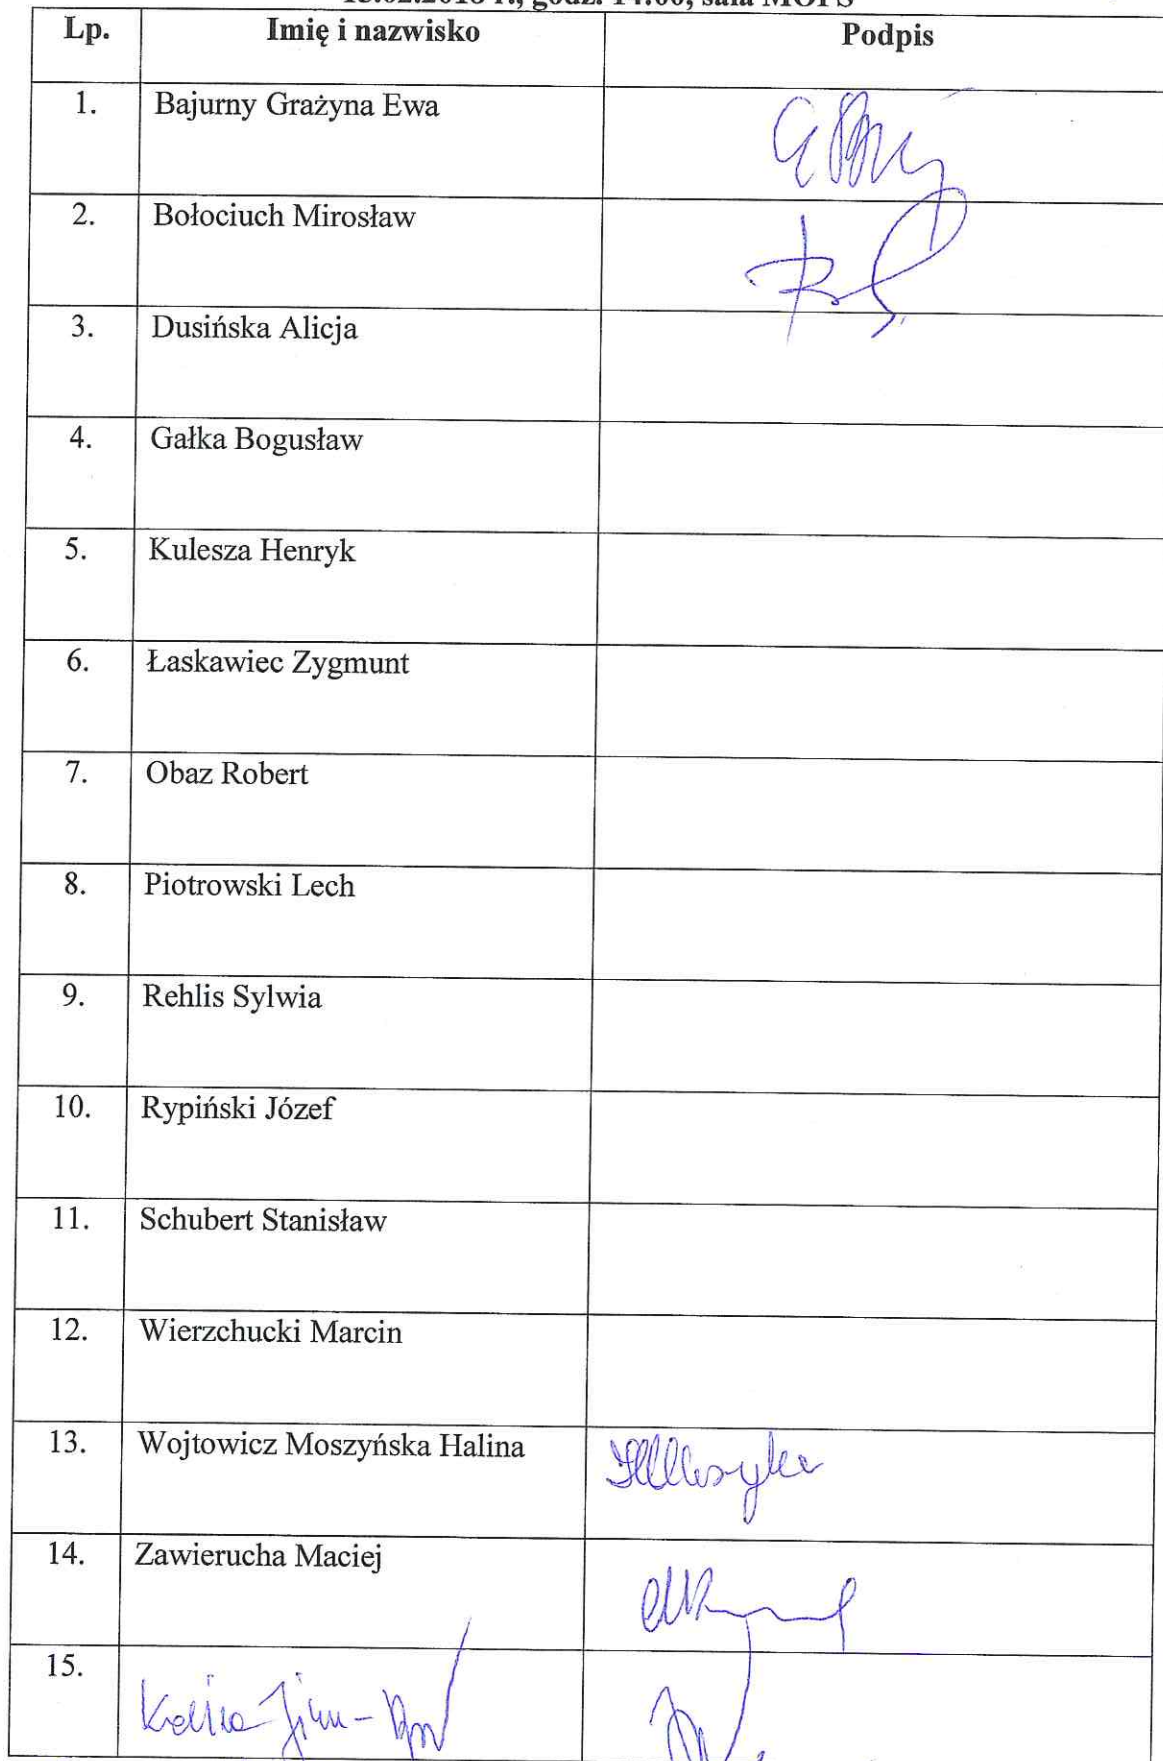 godz. 14:00, sala MOPS
Lp. Imię i nazwisko Podpis
1. Bajurny Grażyna Ewa
2. Bołociuch Mirosław
3. Dusińska Alicja
4. Gałka Bogusław
5. Kulesza Henryk
6. Łaskawiec Zygmunt
7. Obaz Robert
8. Piotrowski Lech
9. Rehlis Sylwia
10. Rypiński Józef
11. Schubert Stanisław
12. Wierzchucki Marcin
13. Wojtowicz Moszyńska Halina
14. Zawierucha Maciej
15.